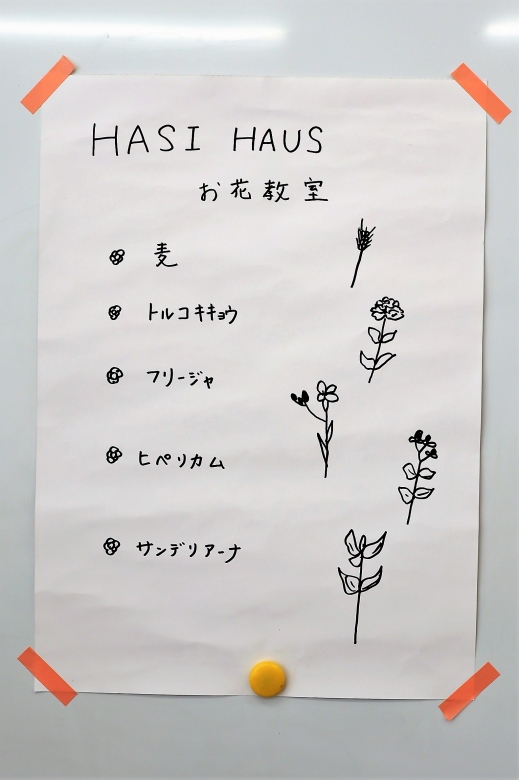 HASI HAUS
お花教室
麦
トルコキキョウ
フリージャ
ヒペリカム
サンデリアーナ